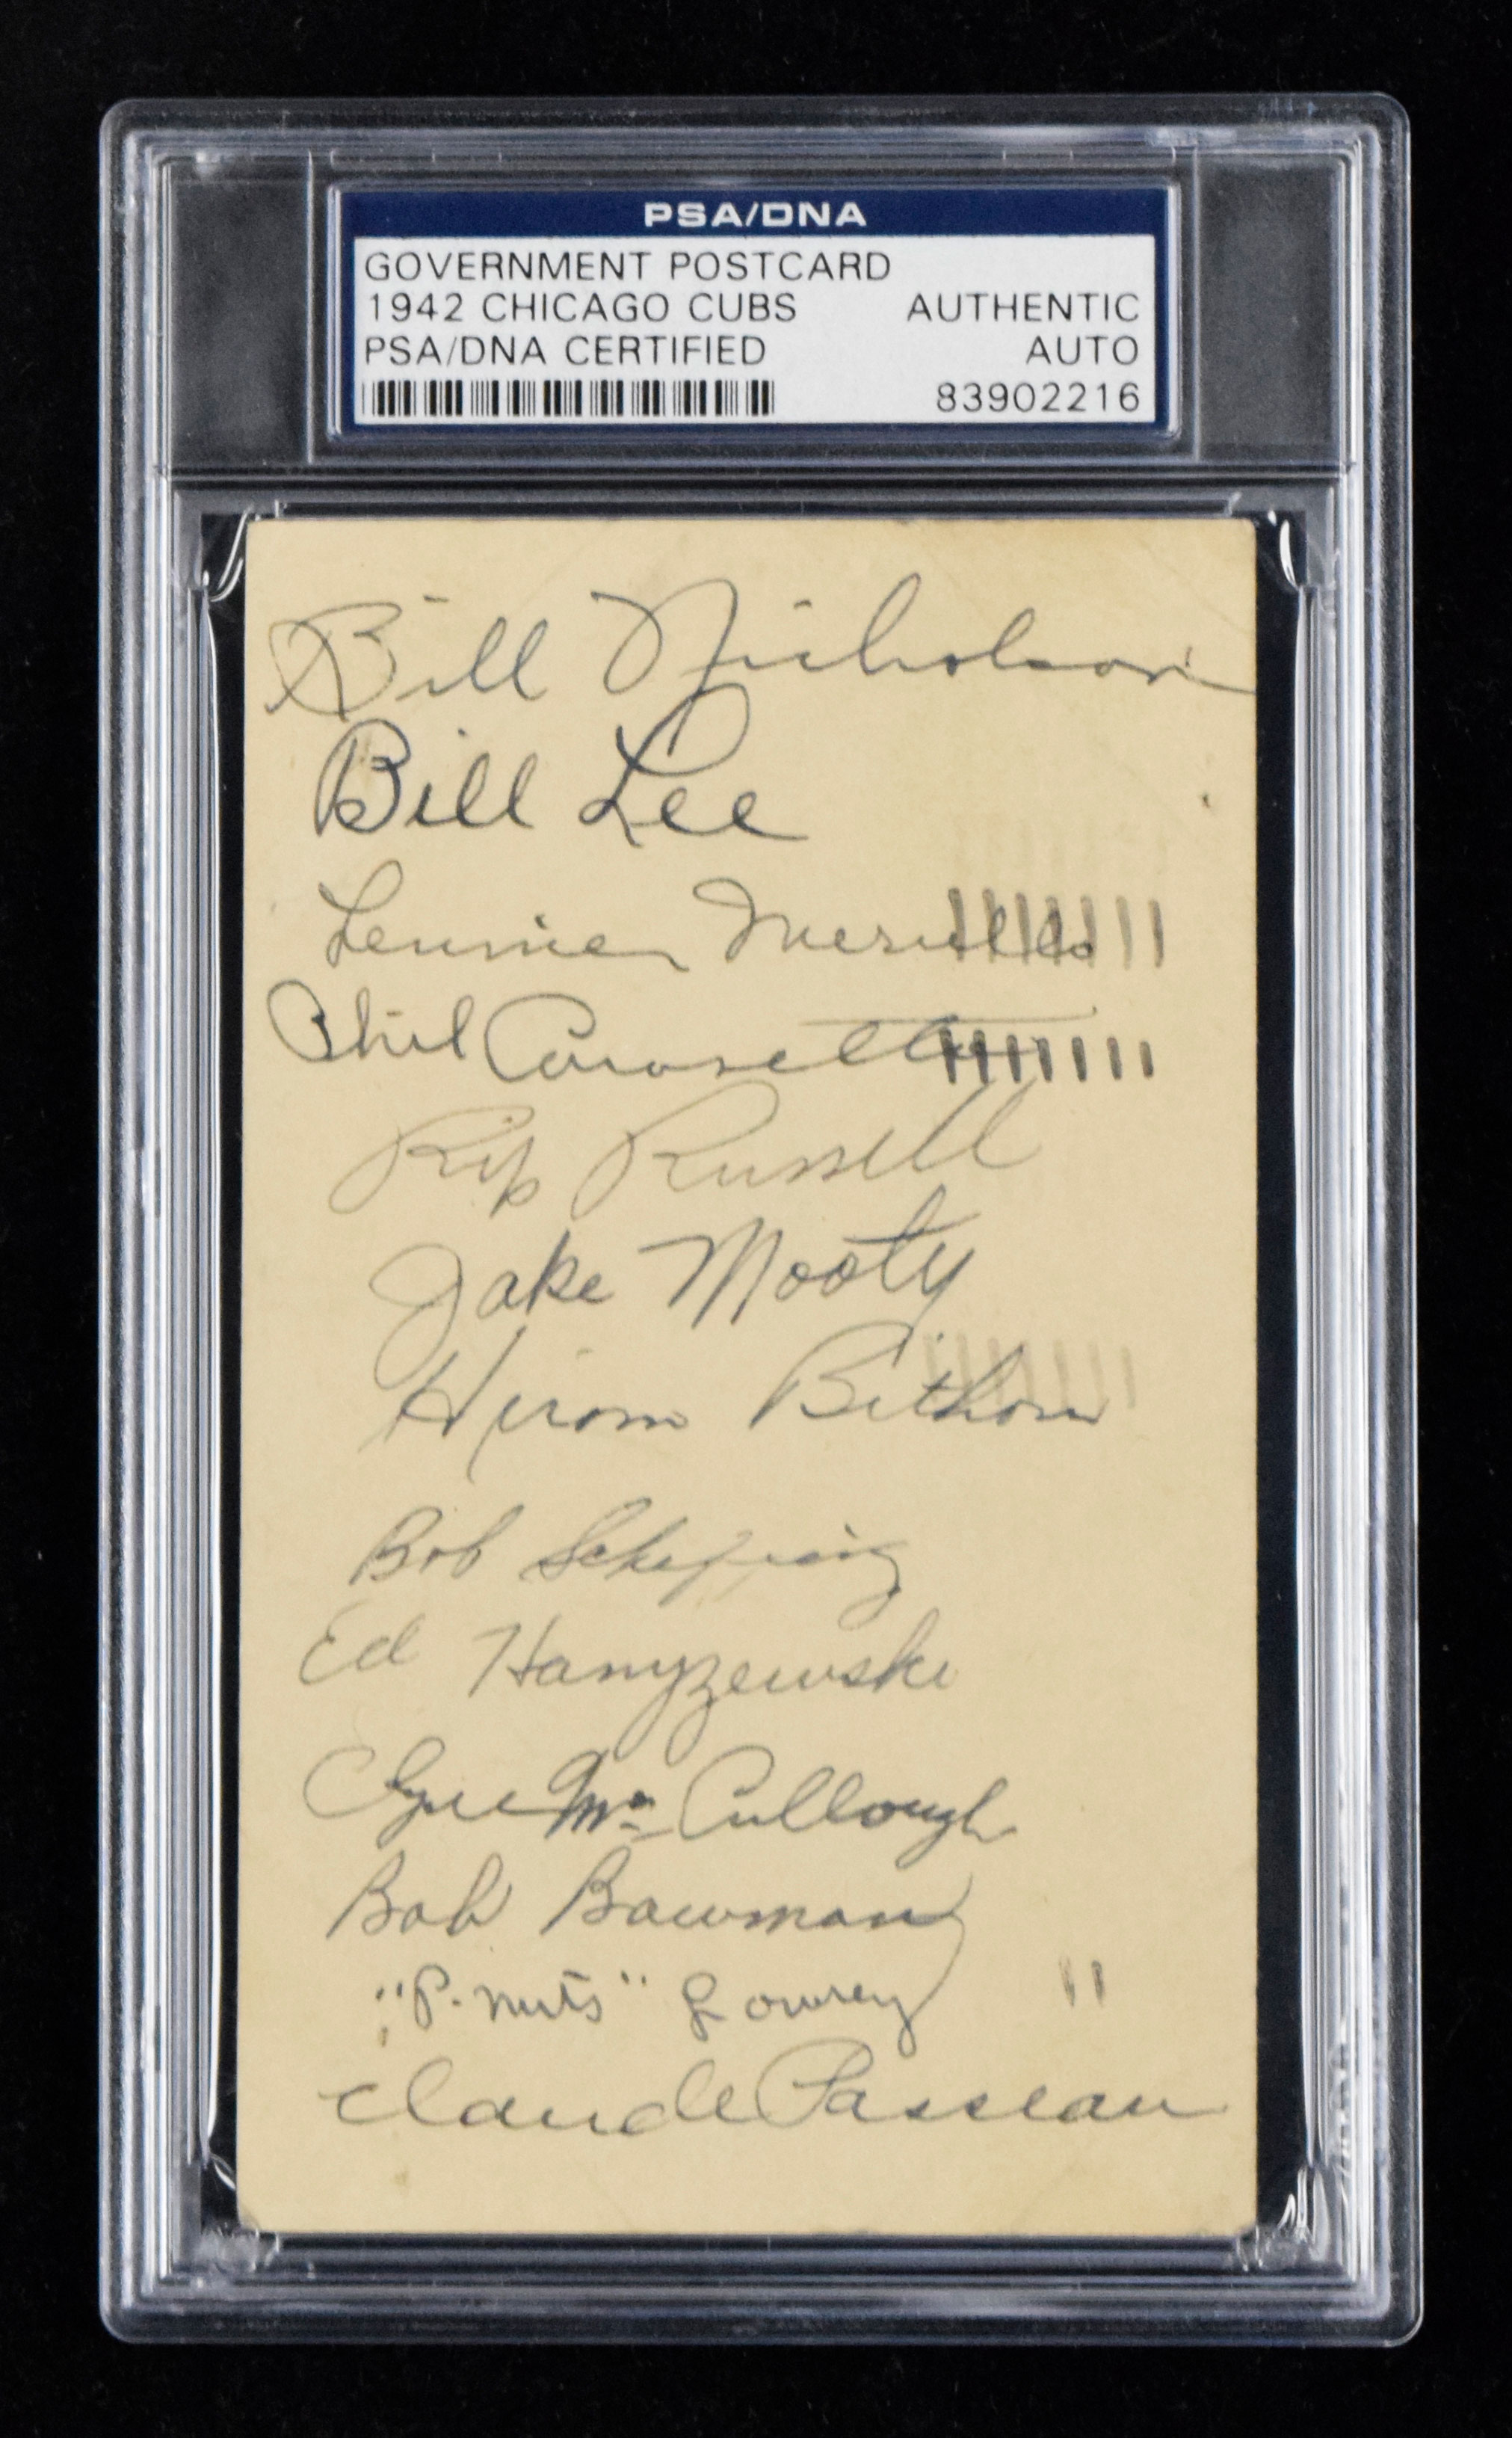 PSA/DNA
GOVERNMENT POSTCARD
1942 CHICAGO CUBS AUTHENTIC
PSA/DNA CERTIFIED AUTO
83902216
Bill Nicholson
Bill Lee
Lennie Merullo
Phil Cavarretta
Rip Russell
Jake Mooty
Hiram Bithorn
Bob Scheffing
Ed Hanyzewski
Clyde McCullough
Bob Bowman
"P-nuts" Lowrey
Claude Passeau